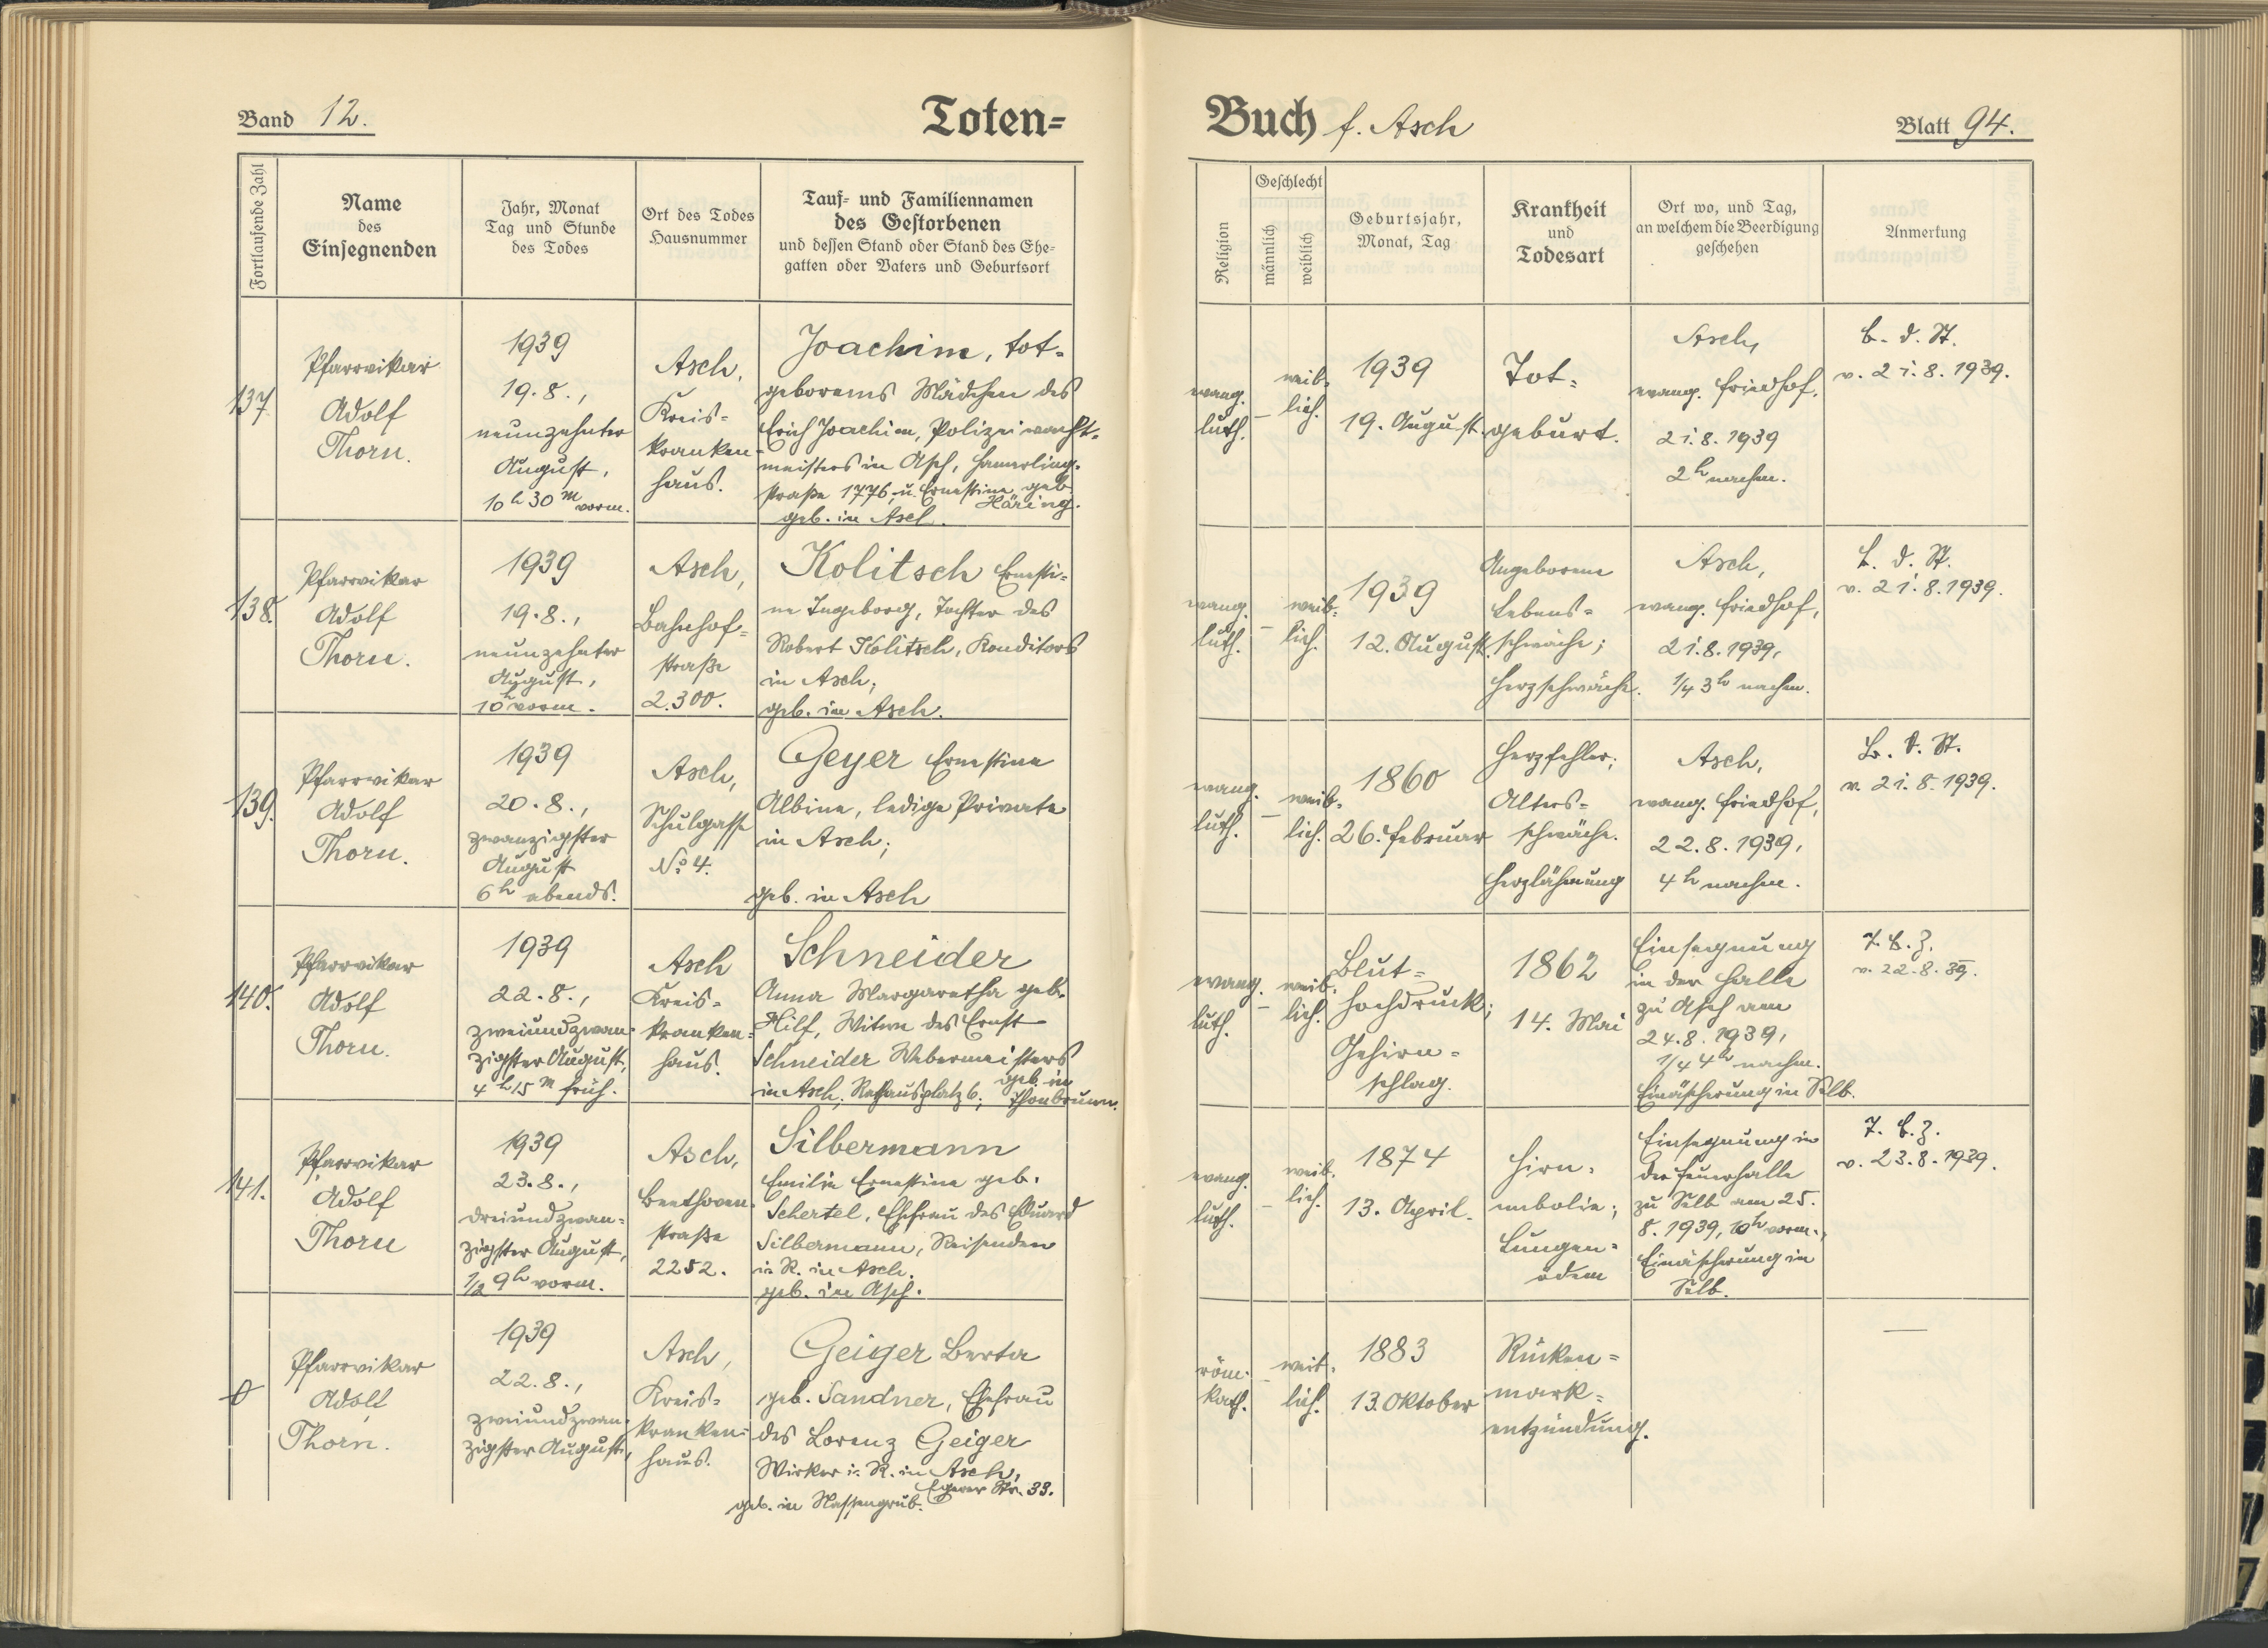 Band 12.
Toten=
Buch f. Asch
Blatt 94.
Fortlaufende Zahl
Name
des
Einsegnenden
Jahr, Monat
Tag und Stunde
des Todes
Ort des Todes
Hausnummer
Tauf= und Familiennamen
des Gestorbenen
und dessen Stand oder Stand des Ehe=
gatten oder Vaters und Geburtsort
Religion
Geschlecht
männlich
weiblich
Geburtsjahr,
Monat, Tag
Krankheit
und
Todesart
Ort wo, und Tag,
an welchem die Beerdigung
geschehen
Anmerkung
137
Pfarrvikar
Adolf
Thorn.
1939
19.8.,
neunzehnter
August,
10h 30m vorm.
Asch,
Kreis=
kranken=
haus.
Joachim, tot=
geborenes Mädchen des
Erich Joachim, Polizeiwacht=
meisters in Asch, Hamerling=
straße 1776, u. Ernestine geb.
Häring.
geb. in Asch.
evang.
luth.
–
weib=
lich.
1939
19. August.
Tot=
geburt.
Asch,
evang. Friedhof,
21.8.1939
2h nachm.
B. d. St.
v. 21.8.1939.
138.
Pfarrvikar
Adolf
Thorn.
1939
19.8.,
neunzehnter
August,
10h vorm.
Asch,
Bahnhof=
straße
2.300.
Kolitsch Ernesti=
ne Ingeborg, Tochter des
Robert Kolitsch, Konditors
in Asch;
geb. in Asch.
evang.
luth.
–
weib=
lich.
1939
12. August.
Angeborene
Lebens=
schwäche;
Herzschwäche.
Asch,
evang. Friedhof,
21.8.1939,
1/4 3h nachm.
B. d. St.
v. 21.8.1939.
139.
Pfarrvikar
Adolf
Thorn.
1939
20.8.,
zwanzigster
August
6h abends.
Asch,
Schulgasse
No 4.
Geyer Ernestine
Albine, ledige Private
in Asch;
geb. in Asch
evang.
luth.
–
weib=
lich.
1860
26. Februar
Herzfehler;
Alters=
schwäche.
Herzlähmung
Asch,
evang. Friedhof,
22.8.1939,
4h nachm.
B. d. St.
v. 21.8.1939.
140.
Pfarrvikar
Adolf
Thorn.
1939
22.8.,
zweiundzwan=
zigster August,
4h 15m früh.
Asch
Kreis=
kranken=
haus.
Schneider
Anna Margaretha geb.
Hilf, Witwe des Ernst
Schneider Webermeisters
in Asch, Rathausplatz 6; geb. in
Thonbrunn.
evang.
luth.
–
weib=
lich.
Blut=
hochdruck;
Gehirn=
schlag.
1862
14. Mai
Einsegnung
in der Halle
zu Asch am
24.8.1939,
1/4 4h nachm.
Einäscherung in Selb.
v. 22.8.39.
141.
Pfarrvikar
Adolf
Thorn
1939
23.8.,
dreiundzwan=
zigster August,
1/2 9h vorm.
Asch,
Beethoven=
straße
2252.
Silbermann
Emilie Ernestine geb.
Schertel, Ehefrau des Eduard
Silbermann, Reisenden
i. R. in Asch.
geb. in Asch.
evang.
luth.
–
weib=
lich.
1874
13. April.
Hirn=
embolie;
Lungen=
ödem
Einsegnung in
der Feuerhalle
zu Selb am 25.
8.1939, 10h vorm.,
Einäscherung in
Selb.
v. 23.8.1939.
0
Pfarrvikar
Adolf
Thorn.
1939
22.8.,
zweiundzwan=
zigster August,
Asch,
Kreis=
kranken=
haus.
Geiger Berta
geb. Sandner, Ehefrau
des Lorenz Geiger
Wirker i. R. in Asch,
Egerer Str. 33.
geb. in Nassengrub.
röm.
kath.
–
weib=
lich.
1883
13. Oktober
Rücken=
mark=
entzündung.
—